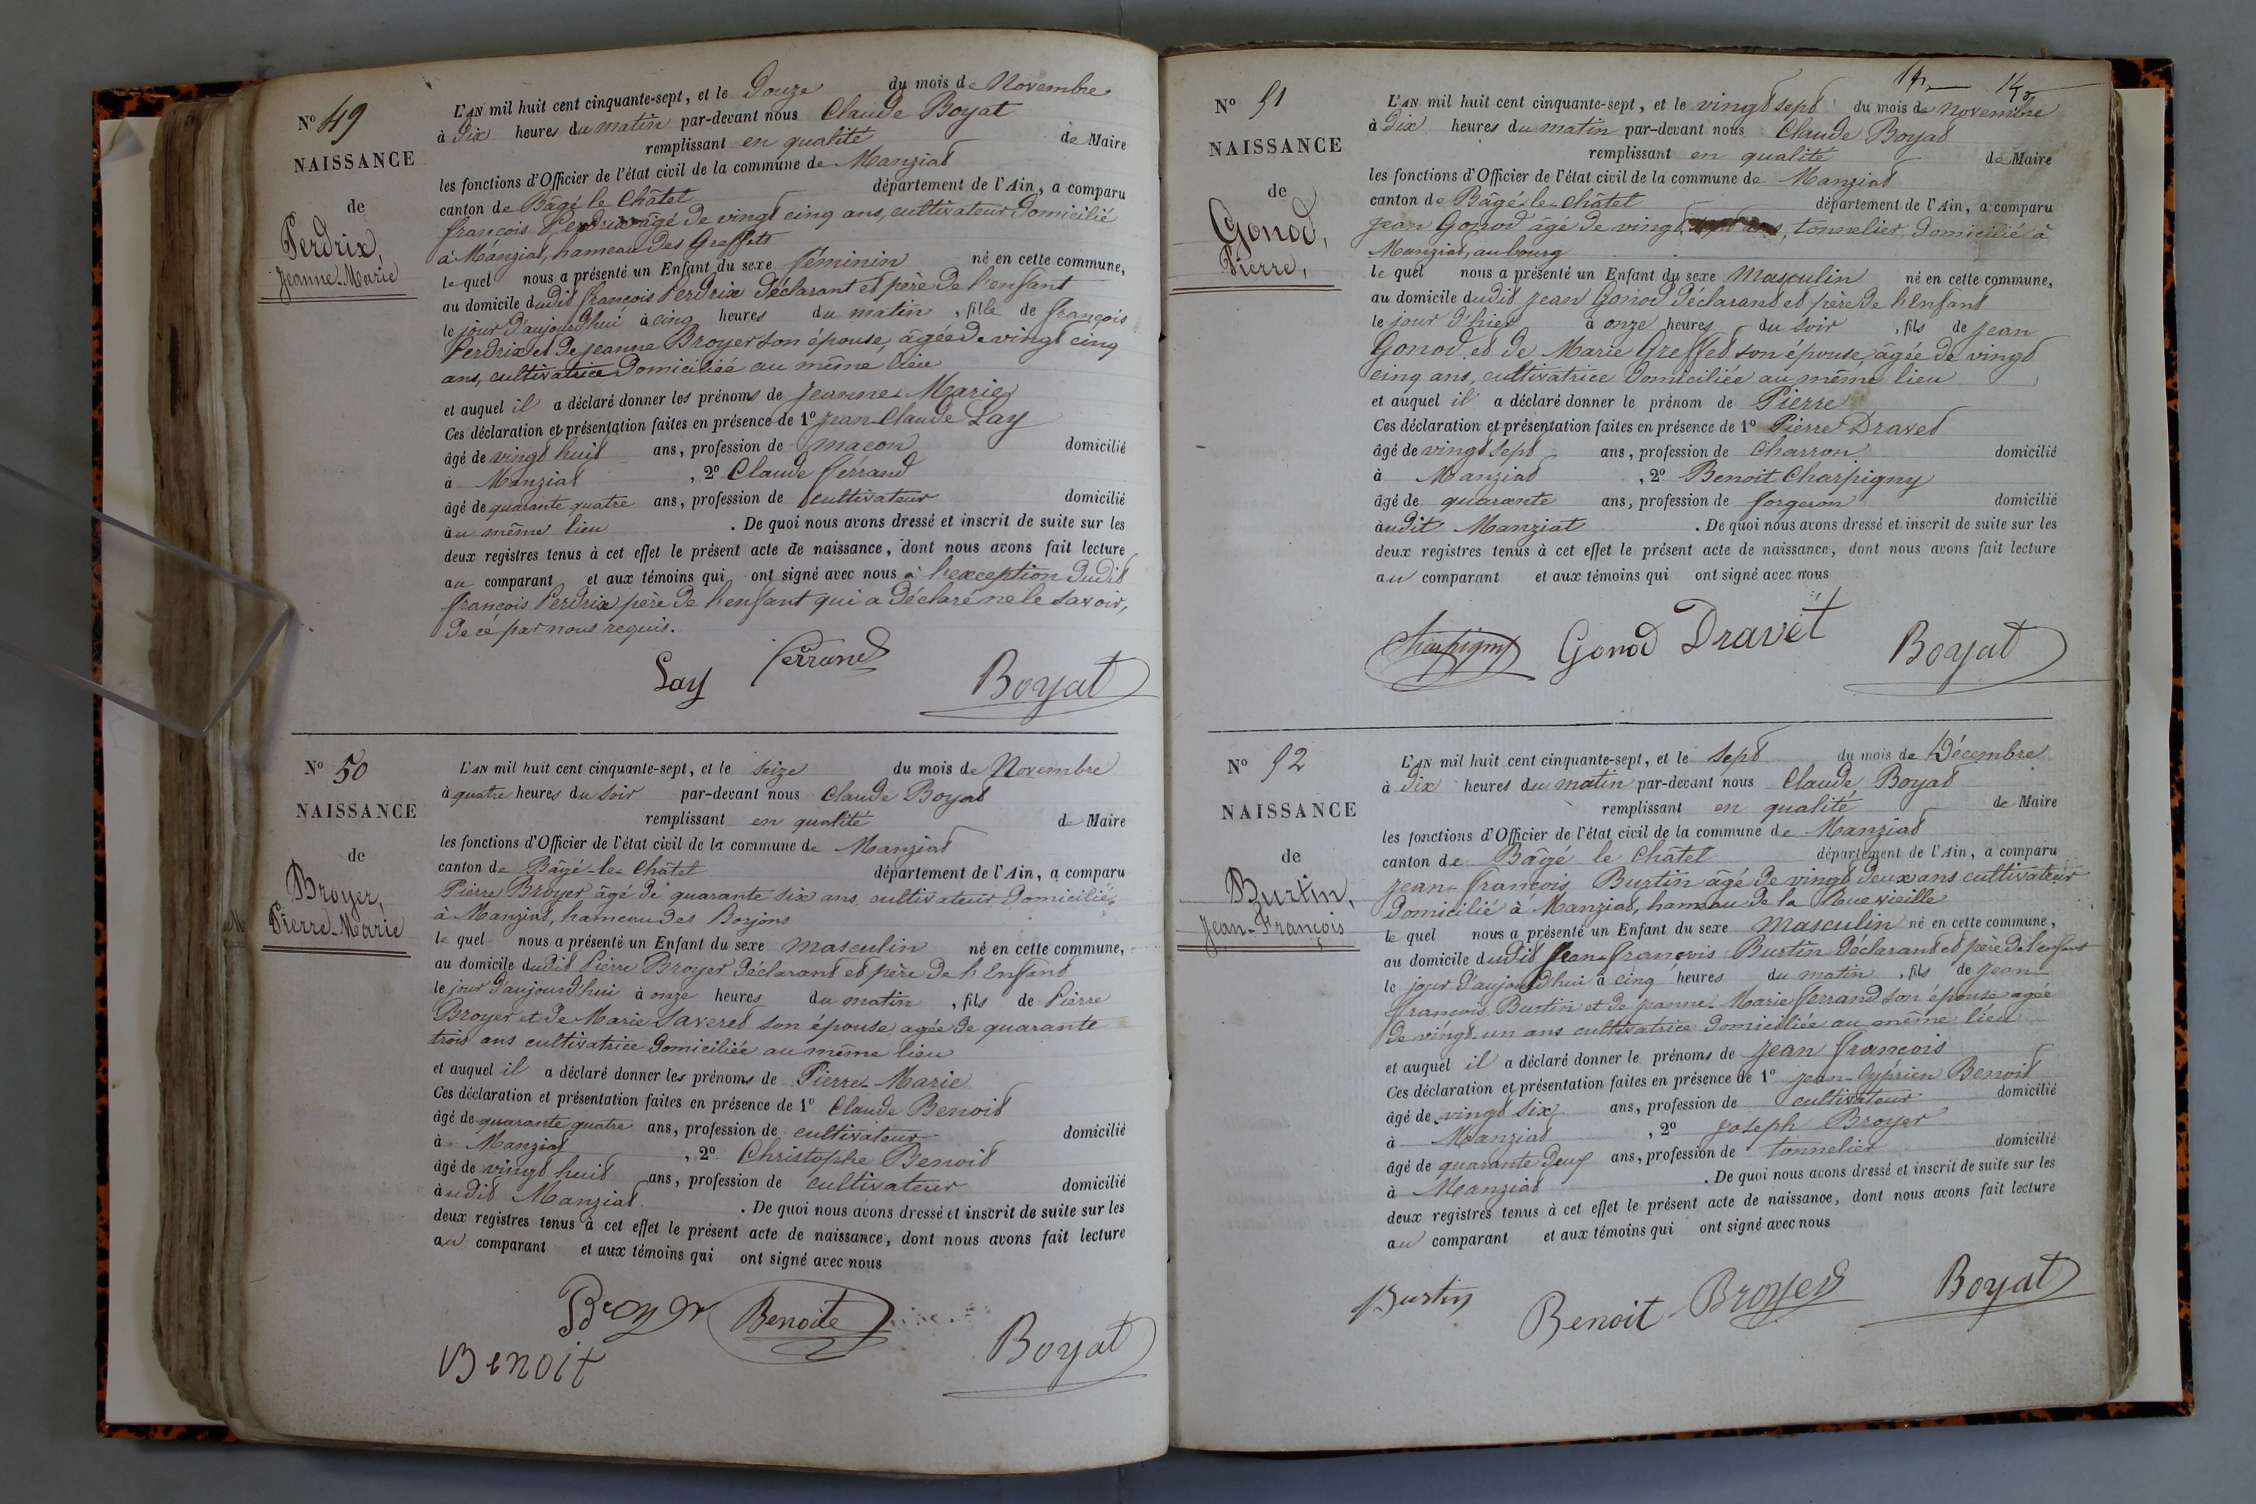 N° 49
NAISSANCE
de
Perdrix,
Jeanne-Marie
L'AN mil huit cent cinquante-sept, et le Douze du mois de Novembre
à Dix heures du matin par-devant nous Claude Boyat
remplissant en qualité de Maire
les fonctions d'Officier de l'état civil de la commune de Manziat
canton de Bâgé le Châtel département de l'Ain, a comparu
françois Perdrix âgé de vingt cinq ans, cultivateur domicilié
à Manziat, hameau des Greffets
le quel nous a présenté un Enfant du sexe féminin né en cette commune,
au domicile dudit françois Perdrix déclarant et père de l'enfant
le jour d'aujourd'hui à cinq heures du matin, fille de françois
Perdrix et de jeanne Broyer son épouse, âgée de vingt cinq
ans, cultivatrice domiciliée au même lieu
et auquel il a déclaré donner les prénoms de Jeanne-Marie
Ces déclaration et présentation faites en présence de 1° jean-Claude Lay
âgé de vingt huit ans, profession de maçon domicilié
à Manziat, 2° Claude ferrand
âgé de quarante quatre ans, profession de cultivateur domicilié
au même lieu. De quoi nous avons dressé et inscrit de suite sur les
deux registres tenus à cet effet le présent acte de naissance, dont nous avons fait lecture
au comparant et aux témoins qui ont signé avec nous à l'exception dudit
françois Perdrix père de l'enfant qui a déclaré ne le savoir,
de cé par nous requis.
Lay ferrand Boyat
N° 50
NAISSANCE
de
Broyer,
Pierre-Marie
L'AN mil huit cent cinquante-sept, et le seize du mois de Novembre
à quatre heures du soir par-devant nous Claude Boyat
remplissant en qualité de Maire
les fonctions d'Officier de l'état civil de la commune de Manziat
canton de Bâgé-le-Châtel département de l'Ain, a comparu
Pierre Broyer âgé de quarante six ans, cultivateur domicilié
à Manziat, hameau des Boyons
le quel nous a présenté un Enfant du sexe masculin né en cette commune,
au domicile dudit Pierre Broyer déclarant et père de l'Enfant
le jour d'aujourd'hui à onze heures du matin, fils de Pierre
Broyer et de Marie Saveret son épouse agée de quarante
trois ans cultivatrice domiciliée au même lieu
et auquel il a déclaré donner les prénoms de Pierre-Marie
Ces déclaration et présentation faites en présence de 1° Claude Benoit
âgé de quarante quatre ans, profession de cultivateur domicilié
à Manziat, 2° Christophe Benoit
âgé de vingt huit ans, profession de cultivateur domicilié
audit Manziat. De quoi nous avons dressé et inscrit de suite sur les
deux registres tenus à cet effet le présent acte de naissance, dont nous avons fait lecture
au comparant et aux témoins qui ont signé avec nous
Broyer Benoite
Benoit Boyat
N° 51
NAISSANCE
de
Gonod,
Pierre,
L'AN mil huit cent cinquante-sept, et le vingt sept du mois de novembre
à Dix heures du matin par-devant nous Claude Boyat
remplissant en qualité de Maire
les fonctions d'Officier de l'état civil de la commune de Manziat
canton de Bâgé-le-Châtel département de l'Ain, a comparu
jean Gonod âgé de vingt sept ans, tonnelier domicilié à
Manziat, au bourg
le quel nous a présenté un Enfant du sexe Masculin né en cette commune,
au domicile dudit jean Gonod déclarant et père de l'Enfant
le jour d'hier à onze heures du soir, fils de jean
Gonod et de Marie Greffet son épouse, âgée de vingt
cinq ans, cultivatrice domiciliée au même lieu
et auquel il a déclaré donner le prénom de Pierre
Ces déclaration et présentation faites en présence de 1° Pierre Dravet
âgé de vingt sept ans, profession de Charron domicilié
à Manziat, 2° Benoit Charpigny
âgé de quarante ans, profession de forgeron domicilié
audit Manziat. De quoi nous avons dressé et inscrit de suite sur les
deux registres tenus à cet effet le présent acte de naissance, dont nous avons fait lecture
au comparant et aux témoins qui ont signé avec nous
Charpigny Gonod Dravet Boyat
N° 52
NAISSANCE
de
Burtin,
Jean-François
L'AN mil huit cent cinquante-sept, et le sept du mois de Décembre
à dix heures du matin par-devant nous Claude Boyat
remplissant en qualité de Maire
les fonctions d'Officier de l'état civil de la commune de Manziat
canton de Bâgé le Châtel département de l'Ain, a comparu
jean-françois Burtin âgé de vingt deux ans cultivateur
domicilié à Manziat, hameau de la Rue vieille
le quel nous a présenté un Enfant du sexe Masculin né en cette commune,
au domicile dudit Jean-françois Burtin déclarant et père de l'enfant
le jour d'aujourd'hui à cinq heures du matin, fils de jean-
françois Burtin et de jeanne-Marie ferrand son épouse agée
de vingt-un ans cultivatrice domiciliée au même lieu
et auquel il a déclaré donner le prénoms de Jean françois
Ces déclaration et présentation faites en présence de 1° jean-Cyprien Benoit
âgé de vingt six ans, profession de cultivateur domicilié
à Manziat, 2° joseph Broyer
âgé de quarante deux ans, profession de tonnelier domicilié
à Manziat. De quoi nous avons dressé et inscrit de suite sur les
deux registres tenus à cet effet le présent acte de naissance, dont nous avons fait lecture
au comparant et aux témoins qui ont signé avec nous
Burtin Benoit Broyer Boyat